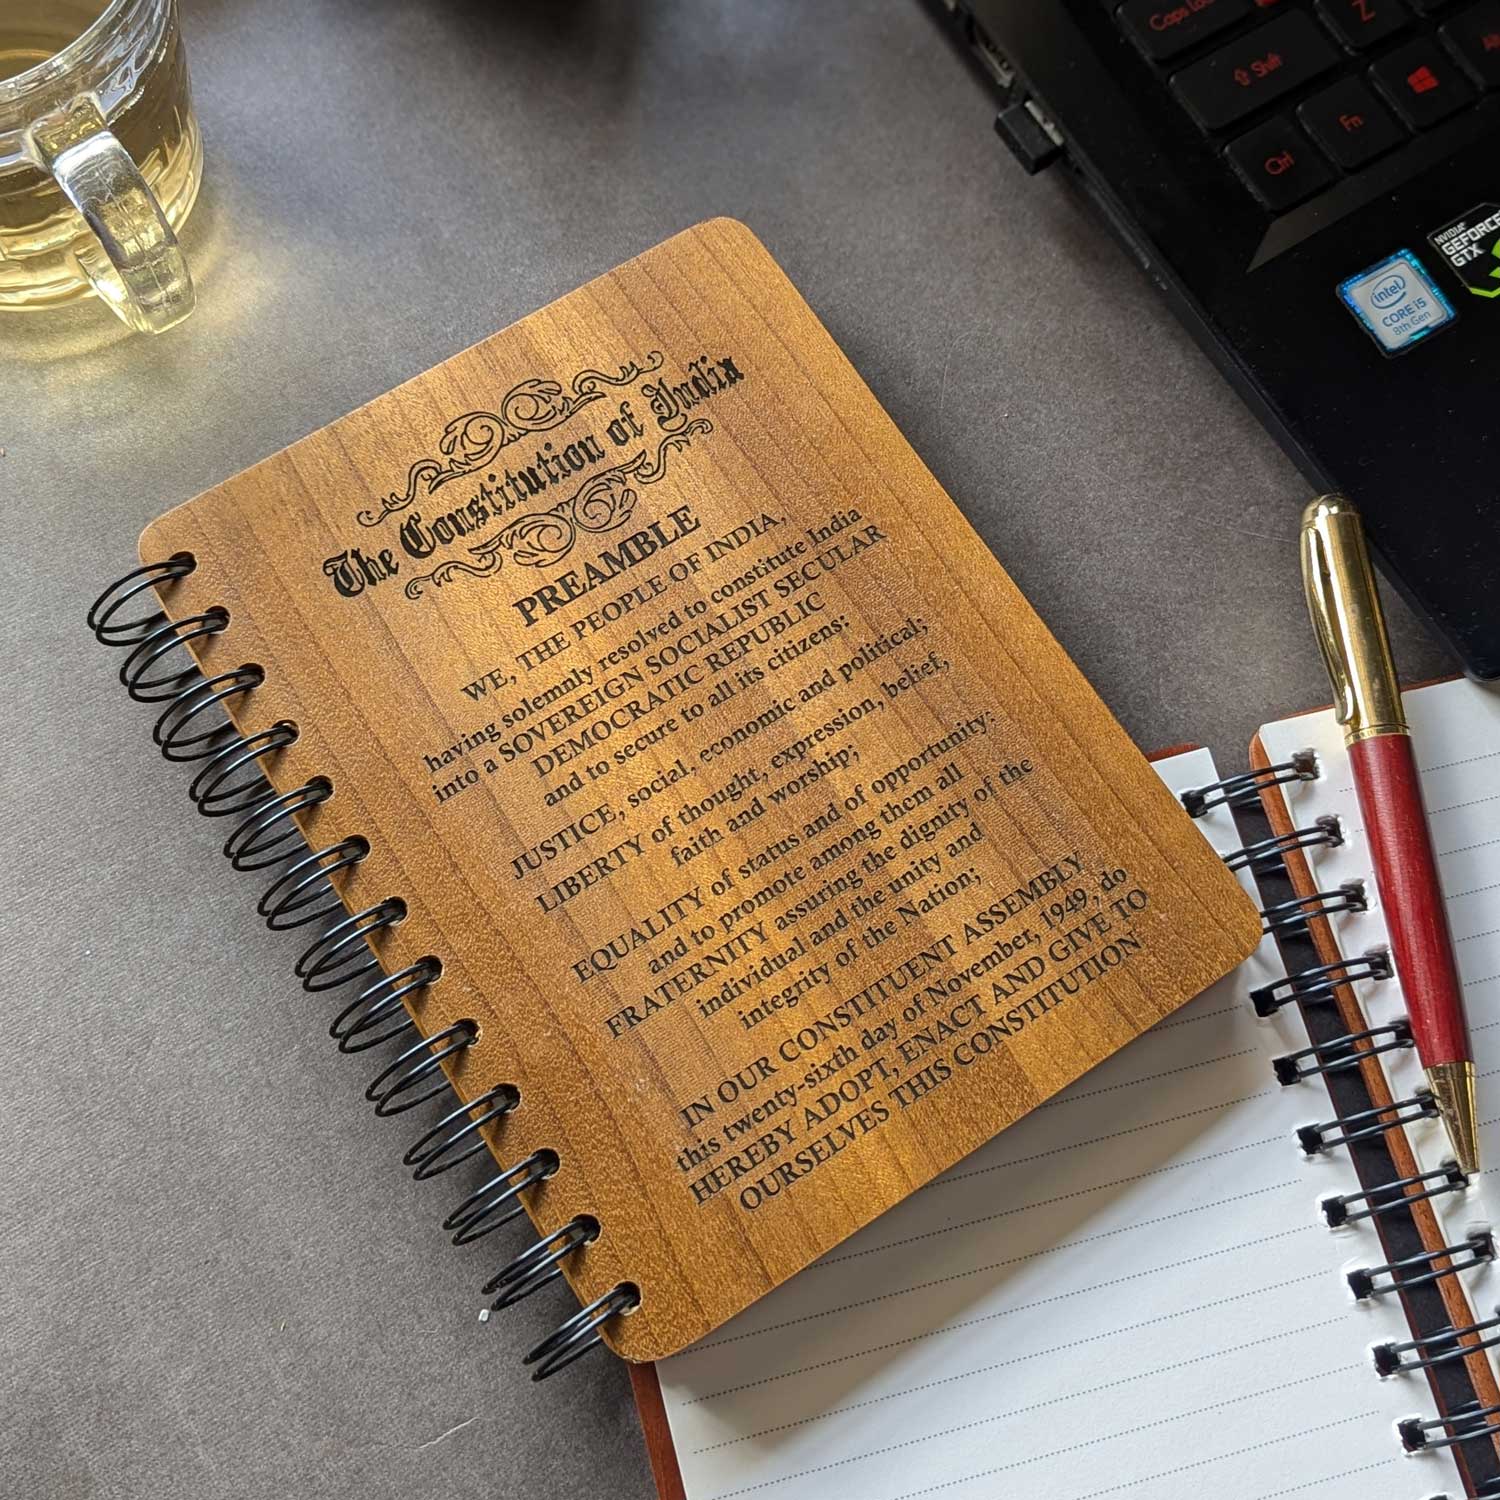 The Constitution of India
PREAMBLE
WE, THE PEOPLE OF INDIA,
having solemnly resolved to constitute India
into a SOVEREIGN SOCIALIST SECULAR
DEMOCRATIC REPUBLIC
and to secure to all its citizens:
JUSTICE, social, economic and political;
LIBERTY of thought, expression, belief,
faith and worship;
EQUALITY of status and of opportunity;
and to promote among them all
FRATERNITY assuring the dignity of the
individual and the unity and
integrity of the Nation;
IN OUR CONSTITUENT ASSEMBLY
this twenty-sixth day of November, 1949, do
HEREBY ADOPT, ENACT AND GIVE TO
OURSELVES THIS CONSTITUTION
Caps Loc
Z
Shift
Fn
Alt
Ctrl
intel
CORE i5
8th Gen
NVIDIA
GEFORCE
GTX